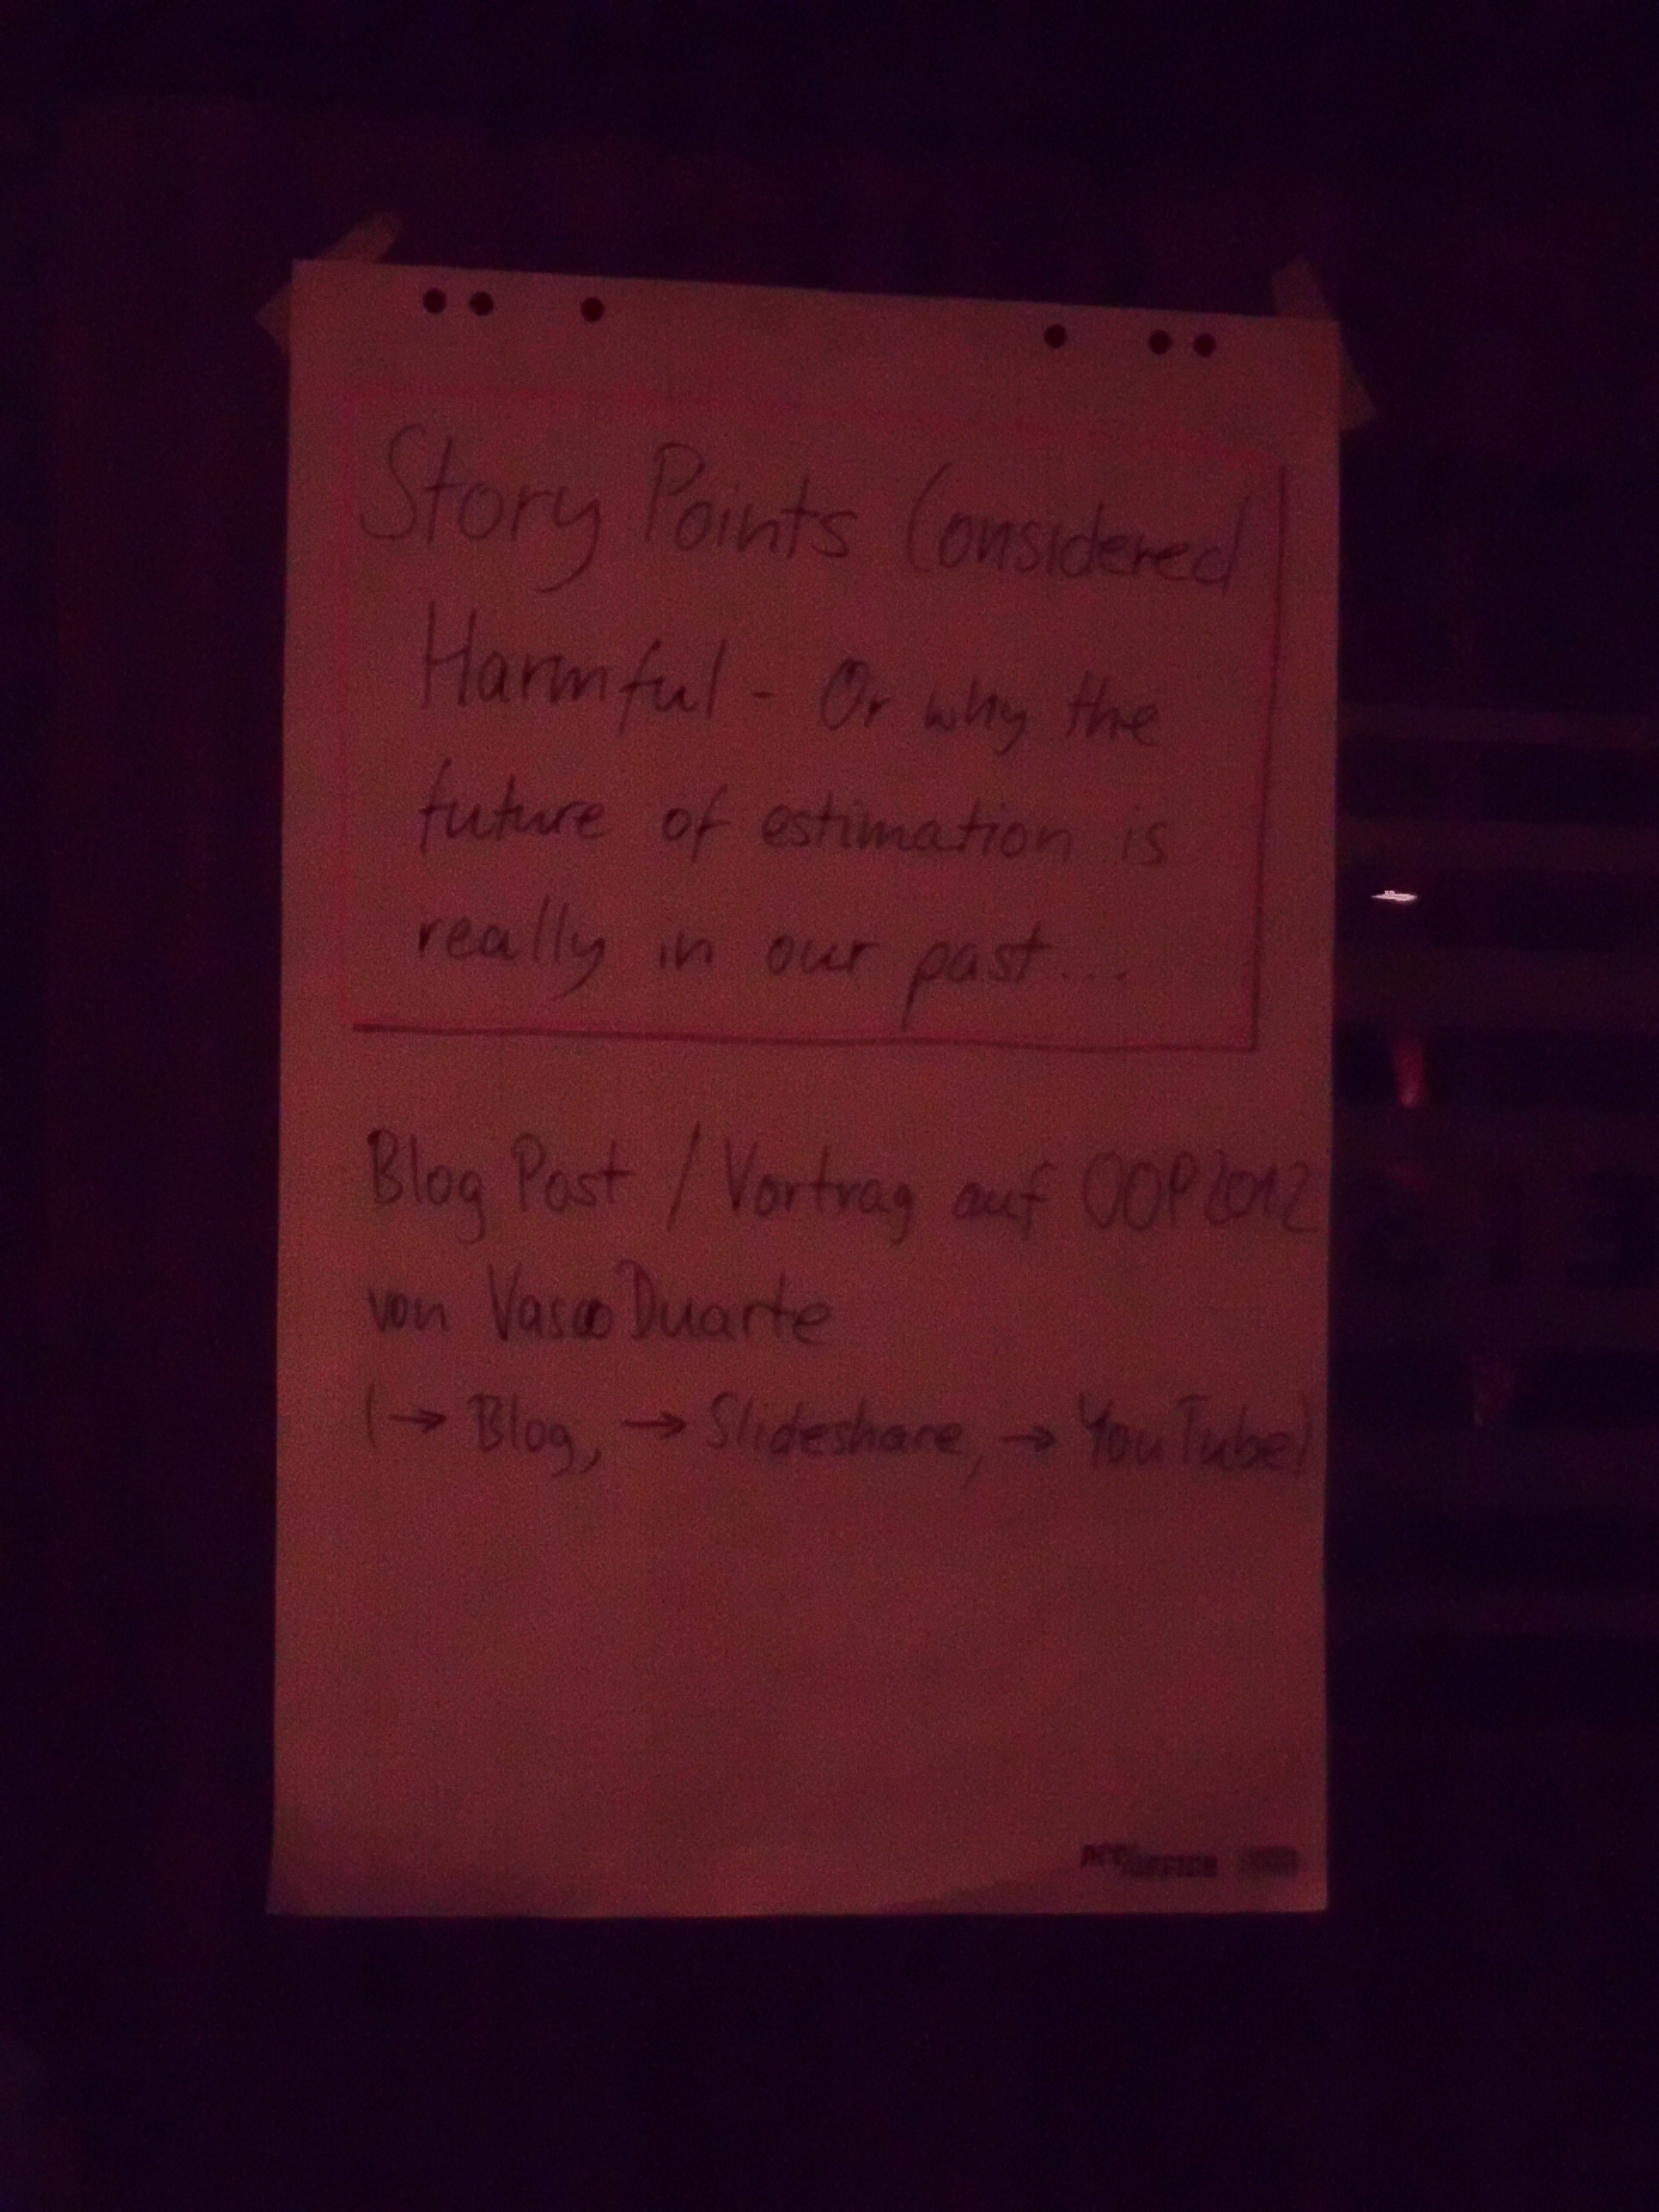 Story Points Considered
Harmful - Or why the
future of estimation is
really in our past...
Blog Post / Vortrag auf OOP2012
von Vasco Duarte
(→ Blog, → Slideshare, → YouTube)